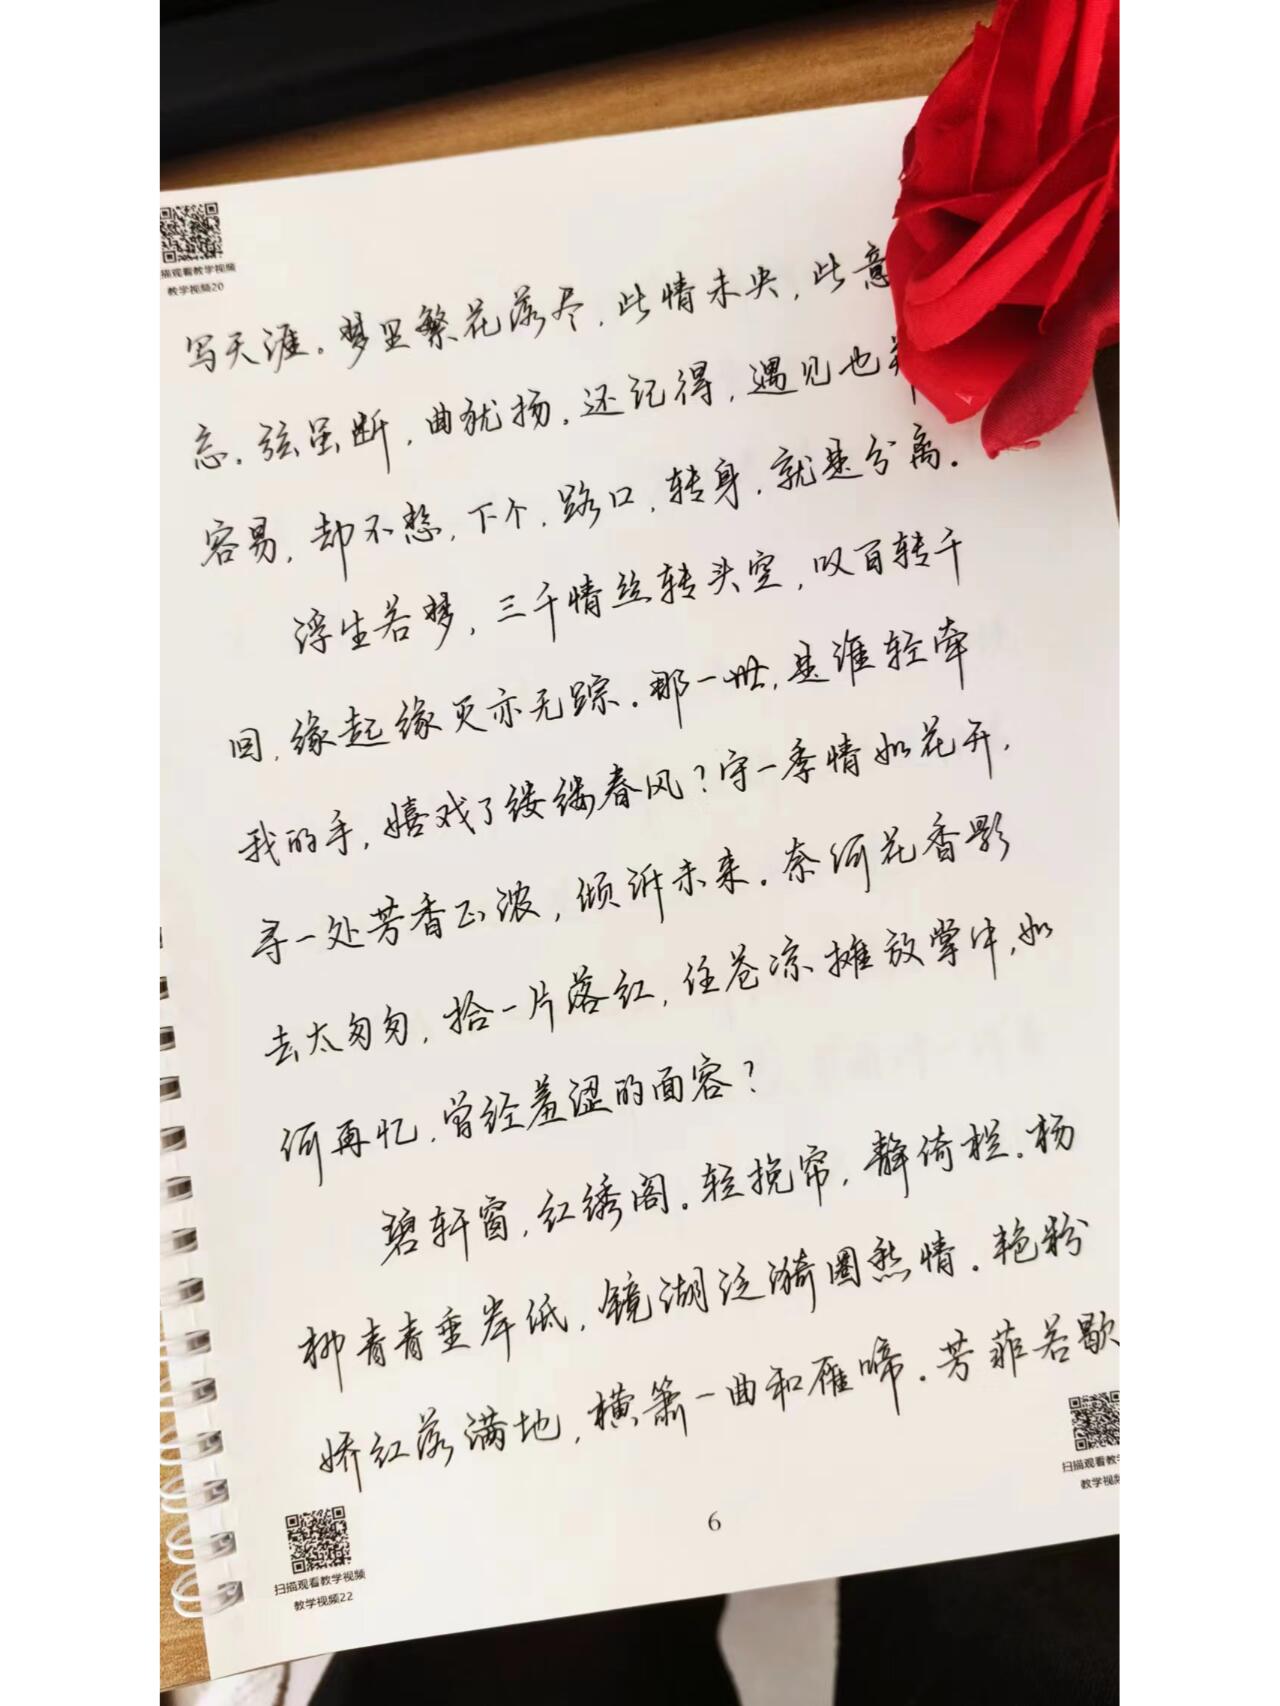 描观看教学视频
教学视频20
写天涯。梦里繁花落尽，此情未央，此意
忘。弦虽断，曲犹扬。还记得，遇见也
容易，却不愁，下个，路口，转身，就是分离。
浮生若梦，三千情丝转头空，叹百转千
回，缘起缘灭亦无踪。那一世，是谁轻牵
我的手，嬉戏了缕缕春风？守一季情如花开，
寻一处芳香正浓，倾诉未来。奈何花香影
去太匆匆，拾一片落红，任苍凉摊放掌中，如
何再忆，曾经羞涩的面容？
碧轩窗，红绣阁。轻挽帘，静倚栏。杨
柳青青垂岸低，镜湖泛漪圈愁情。艳粉
娇红落满地，横箫一曲和雁啼。芳菲若歇
扫描观看教
教学视频
6
扫描观看教学视频
教学视频22